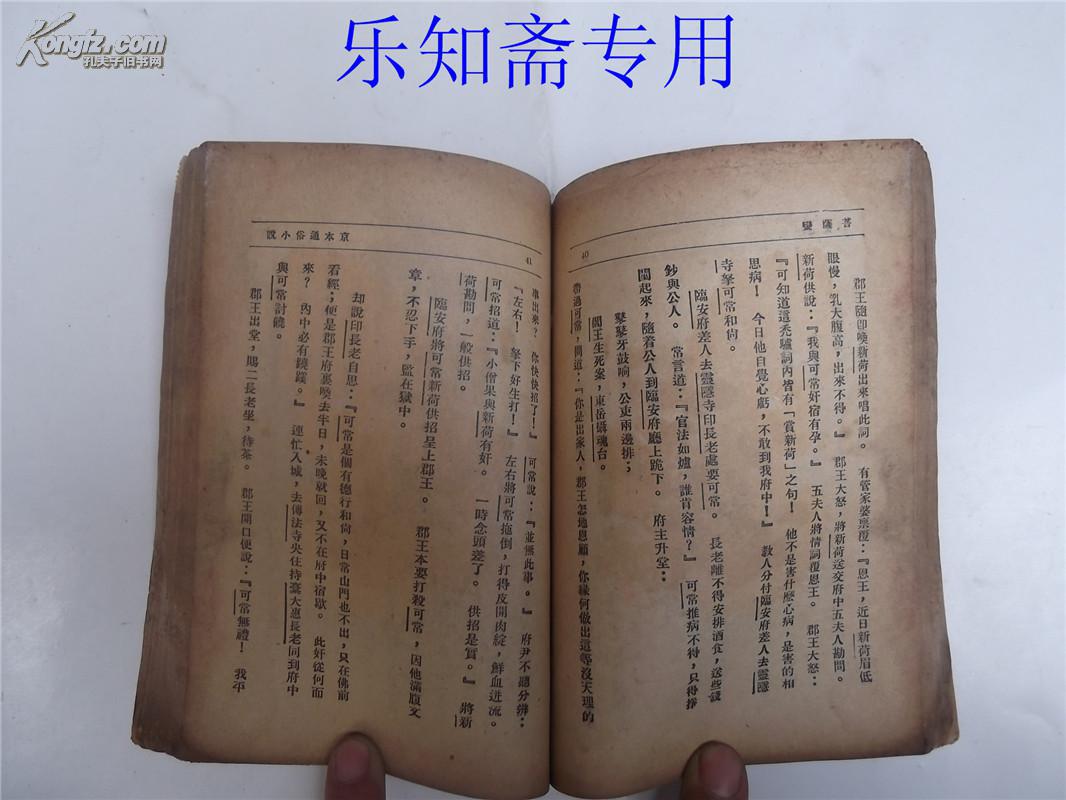 Kongfz.com
孔夫子旧书网
乐知斋专用
菩薩蠻
40
郡王隨即喚新荷出來唱此詞。 有管家婆稟覆：『恩王，近日新荷眉低
眼慢，乳大腹高，出來不得。』 郡王大怒，將新荷送交府中五夫人勘問。
新荷供說：『我與可常奸宿有孕。』 五夫人將情詞覆恩王。 郡王大怒：
『可知道這禿驢詞內皆有「賞新荷」之句！ 他不是害什麼心病，是害的相
思病！ 今日他自覺心虧，不敢到我府中！』 敎人分付臨安府差人去靈隱
寺拏可常和尙。
臨安府差人去靈隱寺印長老處要可常。 長老離不得安排酒食，送些錢
鈔與公人。 常言道：『官法如爐，誰肯容情？』 可常推病不得，只得挣
闍起來，隨着公人到臨安府廳上跪下。 府主升堂：
鼕鼕牙鼓响，公吏兩邊排；
閻王生死案，東岳攝魂台。
帶過可常，問道：『你是出家人，郡王怎地恩顧，你緣何做出這等沒天理的
京本通俗小說
41
事出來？ 你快快招了！』 可常說：『並無此事。』 府尹不聽分辨：
『左右！ 拏下好生打！』 左右將可常拖倒，打得皮開肉綻，鮮血迸流。
可常招道：『小僧果與新荷有奸。 一時念頭差了。 供招是實。』 將新
荷勘問，一般供招。
臨安府將可常新荷供招呈上郡王。 郡王本要打殺可常，因他滿腹文
章，不忍下手，監在獄中。
却說印長老自思：『可常是個有德行和尙，日常山門也不出，只在佛前
看經；便是郡王府裏喚去半日，未晚就回，又不在府中宿歇。 此奸從何而
來？ 內中必有蹺蹊。』 連忙入城，去傳法寺央住持槀大惠長老同到府中
與可常討饒。
郡王出堂，賜二長老坐，待茶。 郡王開口便說：『可常無禮！ 我平